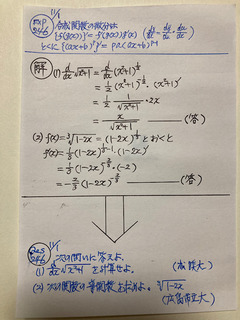 EXP 246 1/1
合成関数の微分は
{f(g(x))}' = f'(g(x))g'(x) (dy/dx = dy/du・du/dx)
とくに {(ax+b)^p}' = pa(ax+b)^(p-1)
解 (1) d/dx √(x²+1) = d/dx (x²+1)^(1/2)
= 1/2 (x²+1)^(-1/2)・(x²+1)'
= 1/2・1/√(x²+1)・2x
= x/√(x²+1) ——(答)
(2) f(x) = ³√(1-2x) = (1-2x)^(1/3) とおくと
f'(x) = 1/3 (1-2x)^(1/3-1)・(1-2x)'
= 1/3 (1-2x)^(-2/3)・(-2)
= -2/3 (1-2x)^(-2/3) ——(答)
246 1/1 次の問いに答えよ。
(1) d/dx √(x²+1) を計算せよ。
(2) 次の関数の導関数を求めよ。 ³√(1-2x)
(広島市立大)